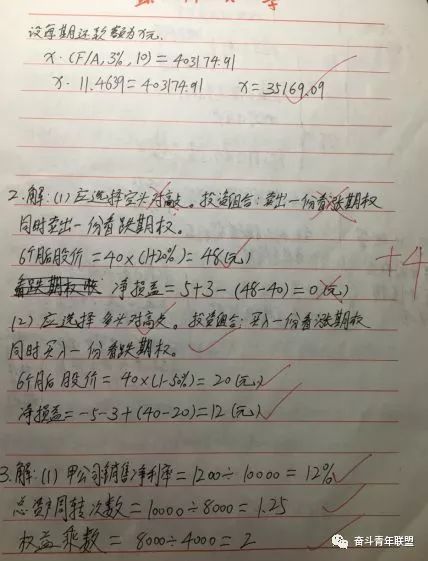 设每期还款额为X元.
X·(F/A,3%,10)=403174.91
X·11.4639=403174.91 X=35169.09
2.解:(1)应选择空头对敲。投资组合:卖出一份看涨期权
同时卖出一份看跌期权。
6个月后股价=40×(1+20%)=48(元)
净损益=5+3-(48-40)=0(元)
+4
(2)应选择多头对敲。投资组合:买入一份看涨期权
同时买入一份看跌期权。
6个月后股价=40×(1-50%)=20(元)
净损益=-5-3+(40-20)=12(元)
3.解:(1)甲公司销售净利率=1200÷10000=12%
总资产周转次数=10000÷8000=1.25
权益乘数=8000÷4000=2
奋斗青年联盟